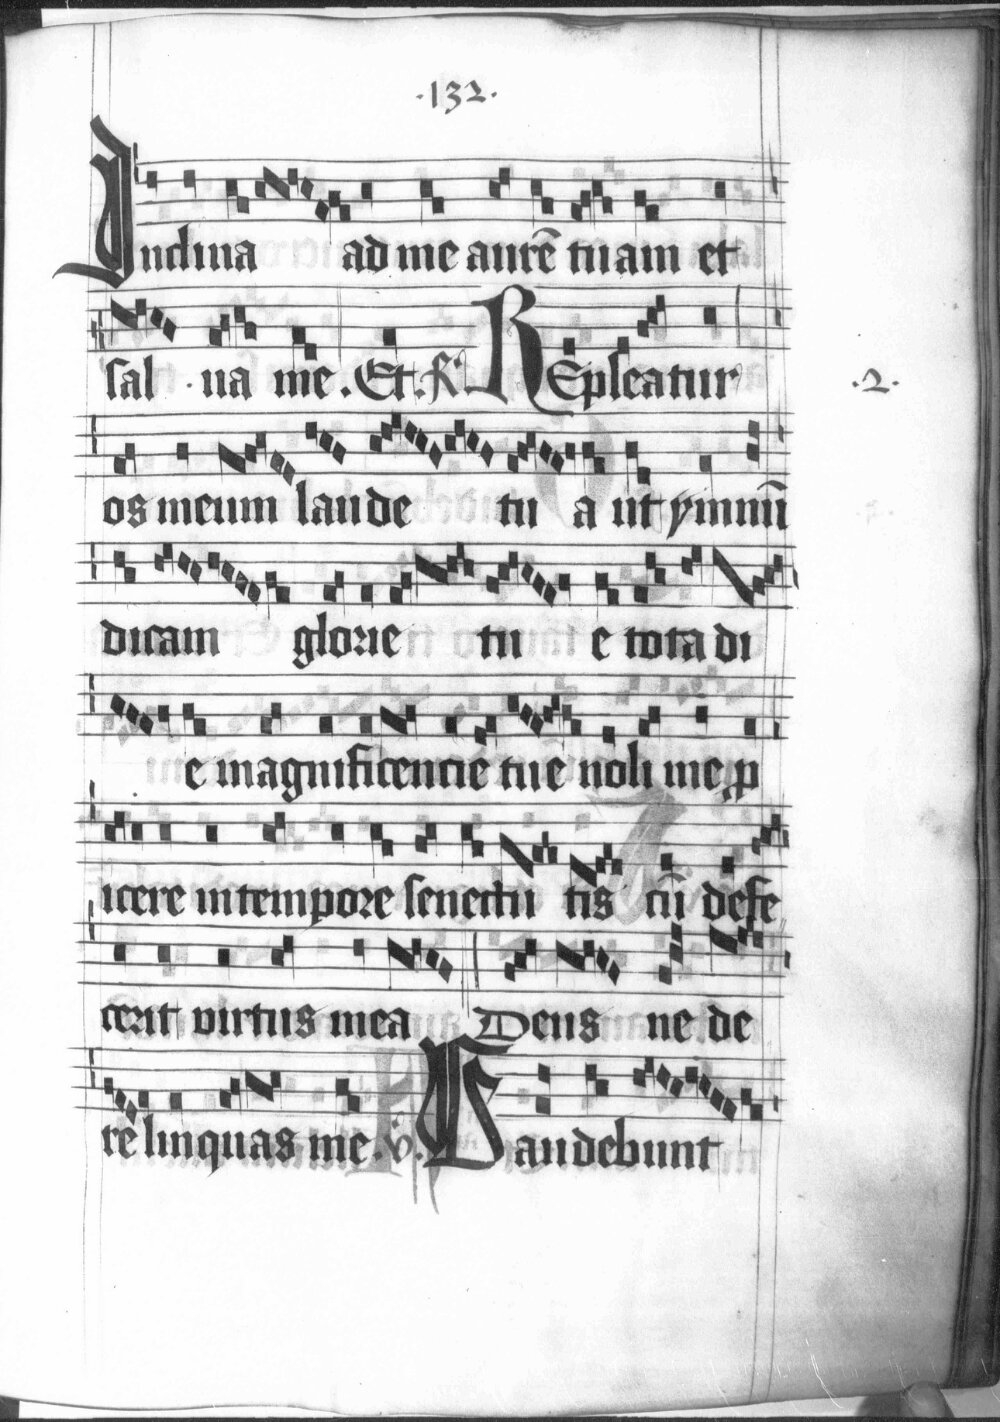 ·132·
Inclina ad me aurē tuam et
sal ua me. Et. R. REpleatur
·2·
os meum laude tu a ut ymnū
dicam glorie tu e tota di
e magnificencie tue noli me p
icere in tempore senectu tis cū defe
cerit virtus mea Deus ne de
relinquas me. v. Gaudebunt